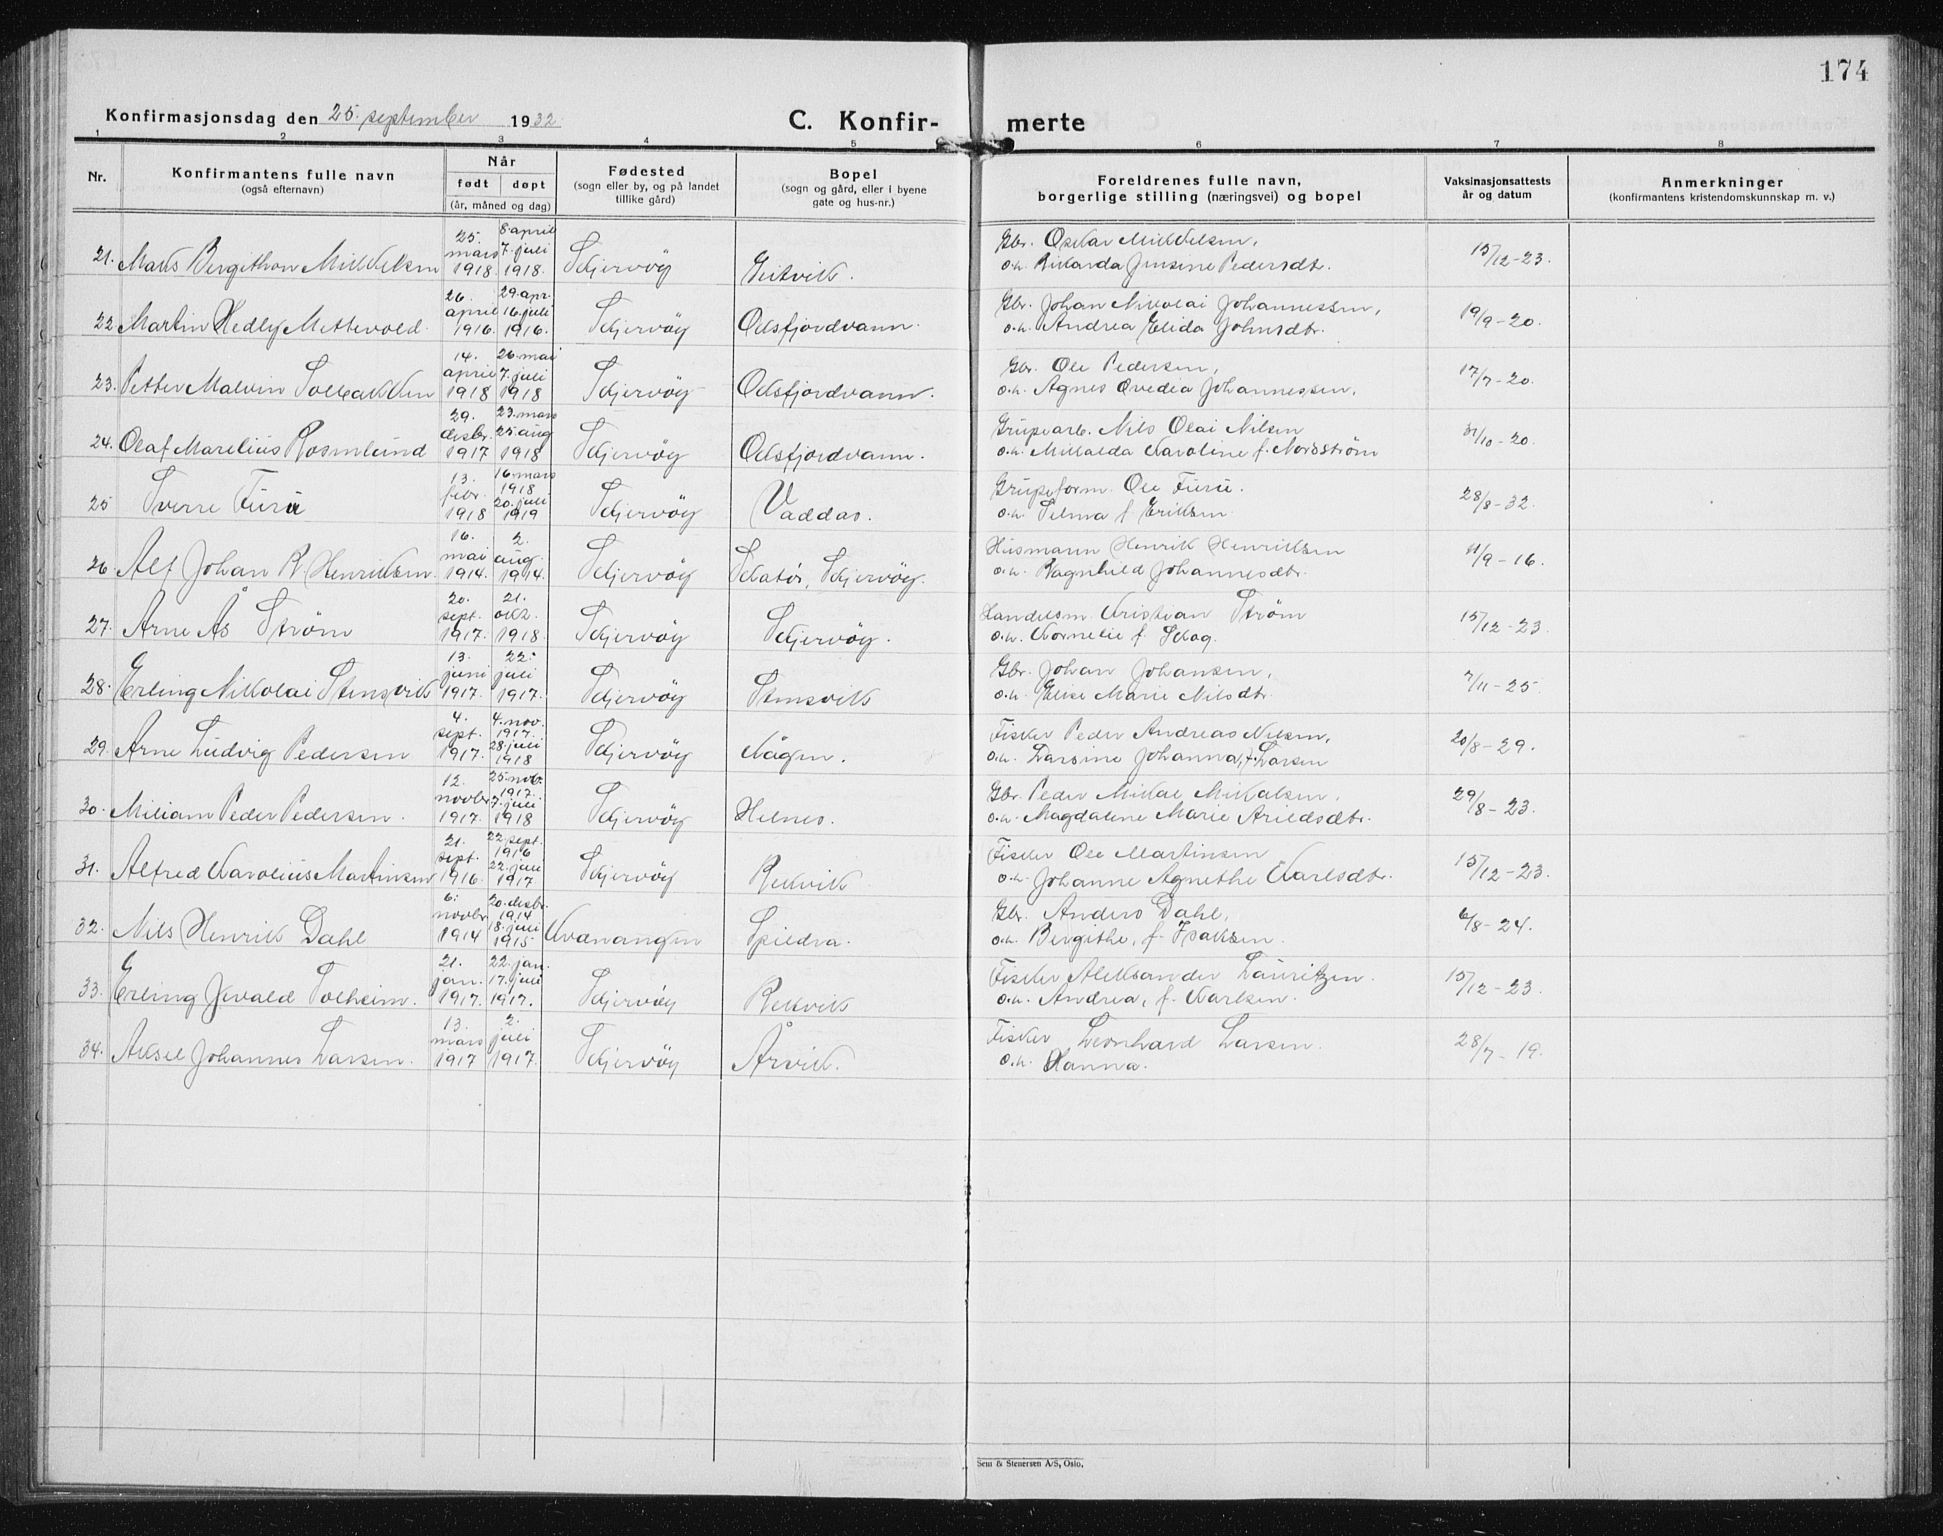 174
Konfirmasjonsdag den 25. september 1932.
C. Konfir- merte
1 2 3 4 5 6 7 8
Nr.
Konfirmantens fulle navn
(også efternavn)
Når
født døpt
(år, måned og dag)
Fødested
(sogn eller by, og på landet
tillike gård)
Bopel
(sogn og gård, eller i byene
gate og hus-nr.)
Foreldrenes fulle navn,
borgerlige stilling (næringsvei) og bopel
Vaksinasjonsattests
år og datum
Anmerkninger
(konfirmantens kristendomskunnskap m. v.)
21. Maks Bergithon Mikkelsen 25. mars 1918. 8. april 7. juli 1918. Skjervøy Geitvik. Gbr. Oskar Mikkelsen, o.h. Rikarda Jensine Pedersdtr. 15/12-23.
22. Martin Hedly Mettevold. 26. april 1916. 29. apr. 16. juli 1916. Skjervøy Oksfjordvann. Gbr. Johan Nikolai Johannessen, o.h. Andrea Elida Johnsdtr. 19/9-20.
23. Petter Malvin Solbakken 14. april 1918 26. mai 7. juli 1918 Skjervøy Oksfjordvann. Gbr. Ole Pedersen, o.h. Agnes Ovedia Johannessen. 17/7-20.
24. Olaf Marelius Rosmlund 29. desbr. 1917 23. mars 25. aug 1918 Skjervøy Oksfjordvann. Grupearb. Nils Olai Nilsen o.h. Mikkalda Karoline f. Nordström 31/10-20.
25 Sverre Furu 13. febr. 1918 16. mars 1918 20. juli 1919 Skjervøy Vaddas. Grupeform. Ole Furu. o.h. Selma f. Eriksen 28/8-32.
26. Alf Johan R. Henriksen 16. mai 1914. 2. aug. 1914. Skjervøy Skatør, Skjervøy. Husmann Henrik Henriksen o.h. Ragnhild Johannesdtr. 11/9-16.
27. Arne Ås Strøm 20. sept. 1917. 21. okt. 1918. Skjervøy Skjervøy. Handelsm. Kristian Strøm o.h. Kornelie f. Skog. 15/12-23.
28. Erling Nikolai Stensvik 13. juni 1917. 22. juli 1917. Skjervøy Stensvik Gbr. Johan Johansen, o.h. Elise Marie Nilsdtr. 7/11-25.
29. Arne Ludvig Pedersen 4. sept. 1917. 4. nov. 1917. 28. juli 1918 Skjervøy Kågen. Fisker Peder Andreas Nilsen, o.h. Larsine Johanna, f. Larsen 20/8-29.
30. Miliam Peder Pedersen. 12. novbr. 1917. 25. nov. 1917. 7. juli 1918 Skjervøy Helnes. Gbr. Peder Mikal Mikalsen. o.h. Magdalene Marie Arildsdtr. 29/8-23.
31. Alfred Karolius Martinsen 21. sept. 1916. 22. sept. 1916 22. juli 1917 Skjervøy Rekvik. Fisker Ole Martinsen o.h. Johanne Agnethe Karlsdtr. 15/12-23.
32. Nils Henrik Dahl 6. novbr. 1914 20. desbr. 1914 18. juli 1915 Kvænangen Spildra. Gbr. Anders Dahl, o.h. Bergithe, f. Isaksen. 6/8-24.
33. Erling Jevald Solheim. 21. jan. 1917. 22. jan. 17. juli 1917. Skjervøy Rekvik Fisker Aleksander Lauritzen. o.h. Andrea, f. Karlsen. 15/12-23.
34. Aksel Johannes Larsen. 13. mars 1917 2. juli 1917. Skjervøy Årvik. Fisker Leonhard Larsen. o.h. Hanna. 28/7-19.
Sem & Stenersen A/S, Oslo.